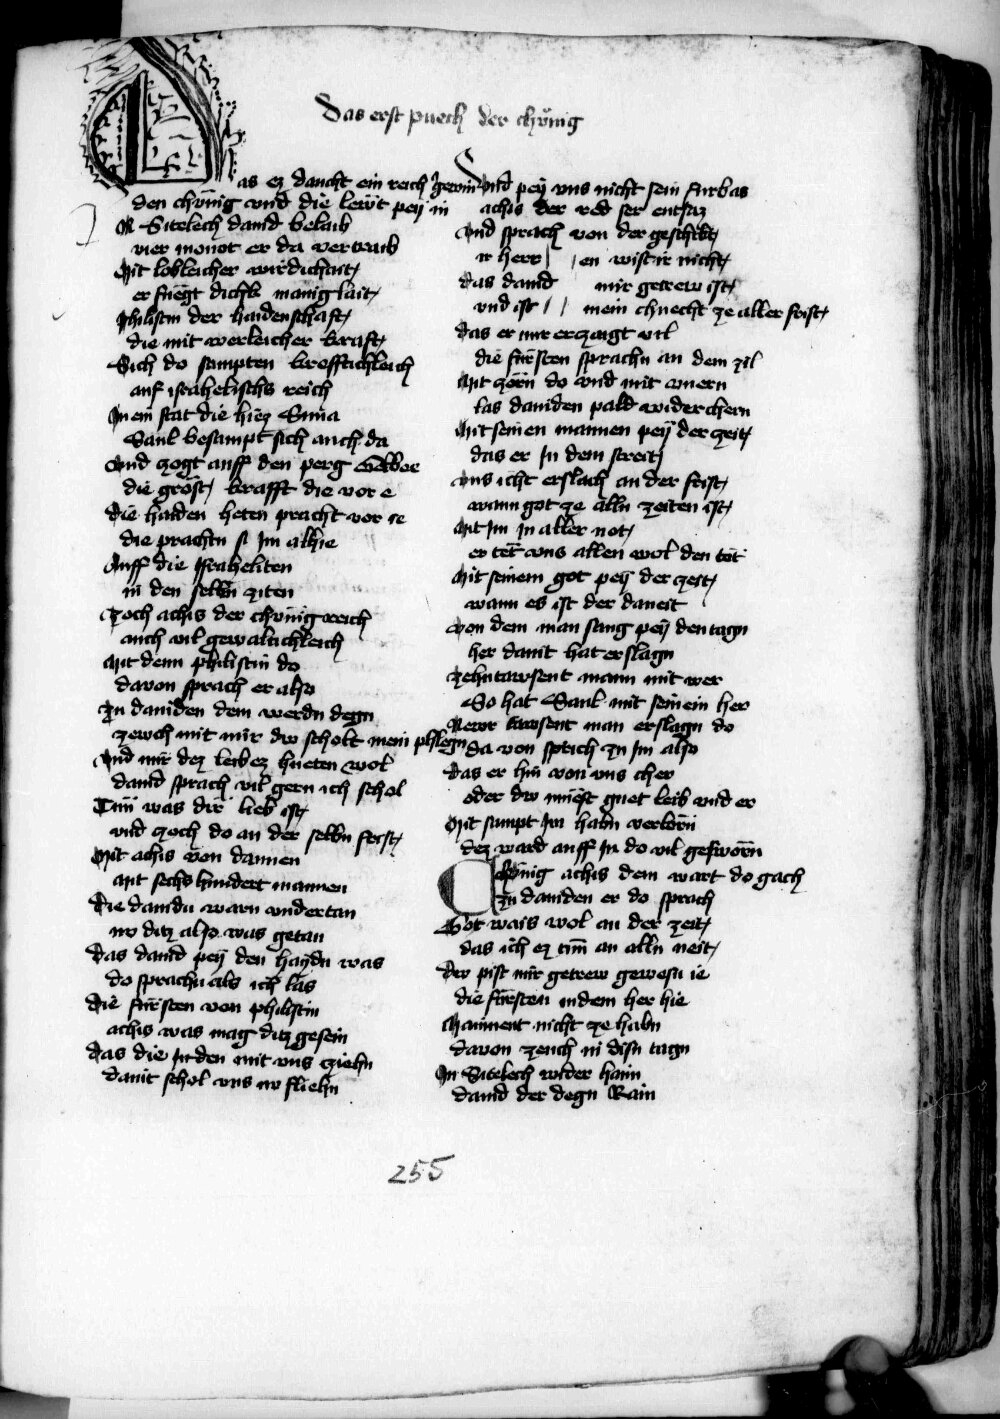 Das erst puech der chünig
Das ez daucht ein reich gewin
den chünig vnd die lewt pey in
In Sitelech dauid belaib
vier monot er da vertraib
Mit lobleicher wirdichait
er fuegt dicht manig lait
Philistin der haidenschaft
die mit werleicher kraft
Sich do sampten krefftichleich
auf israhelischs reich
In ein stat die hiez Sima
Saul besampt sich auch da
Vnd zogt auff den perg Gelboe
die gröst krafft die vor e
die haiden heten pracht vor ie
die prachtn si Im alhie
Auff die Israheliten
in den selbn ziten
Zoch achis der chünig reich
auch vil gewaltichleich
Mit denn philistin do
davon sprach er also
Zu dauiden dem werdn degn
zewch mit mir dw scholt mein phlegn
Vnd mir dez leib ez hueten wol
dauid sprach vil gern ich schol
Tun was dir lieb ist
vnd zoch do an der selbn frist
Mit achis von dannen
mit sechs hundert mannen
Die dauidn warn vndertan
nw ditz also was getan
Das dauid pey den haydn was
do sprachn als ich las
Die fürsten von philistin
achis was mag ditz gesein
Das die Juden mit vns ziehn
damit schol vns nw fliehn
Vnd pey vns nicht sein furbas
achis der red ser entsaz
Vnd sprach von der geschicht
ir herr en wist ir nicht
Das dauid mir getrew ist
vnd ist mein chnecht ze aller frist
Das er mir erzaigt vil
die fürsten sprachn an dem zil
Mit zorn do vnd mit vnern
las dauiden pald widerchern
Mit seinen mannen pey der zeit
das er In dem streit
Vns icht erslach an der frist
wann got ze alln zeiten ist
Mit Im In aller not
er tet vns allen wol den tot
Mit seinem got pey der zeit
wann es ist der daueit
Von dem man sang pey den tagn
her dauit hat erslagn
Zehntawsent mann mit wer
So hat Saul mit seinem her
Newr tawsent man erslagn do
da von sprich zu Im also
Das er hin von vns cher
oder dw muest guet leib vnd er
Mit sampt Im habn verlorn
dez ward auff In do vil gesworn
Chünig achis dem wart do gach
zu dauiden er do sprach
Got wais wol an der zeit
das ich ez tun an alln neit
Dw pist mir getrew gewesn ie
die fürsten in dem her hie
Mainent nicht ze habn
davon zeuch in disn tagn
In Sitelech wider haim
dauid der degn Rain
255